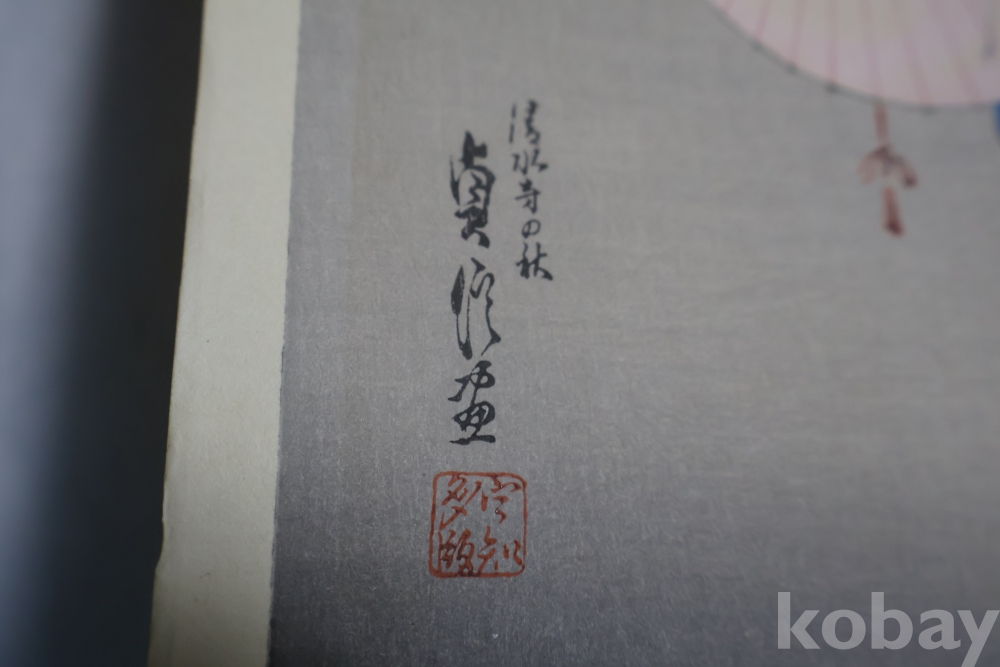 清水寺の秋
貞信画
kobay